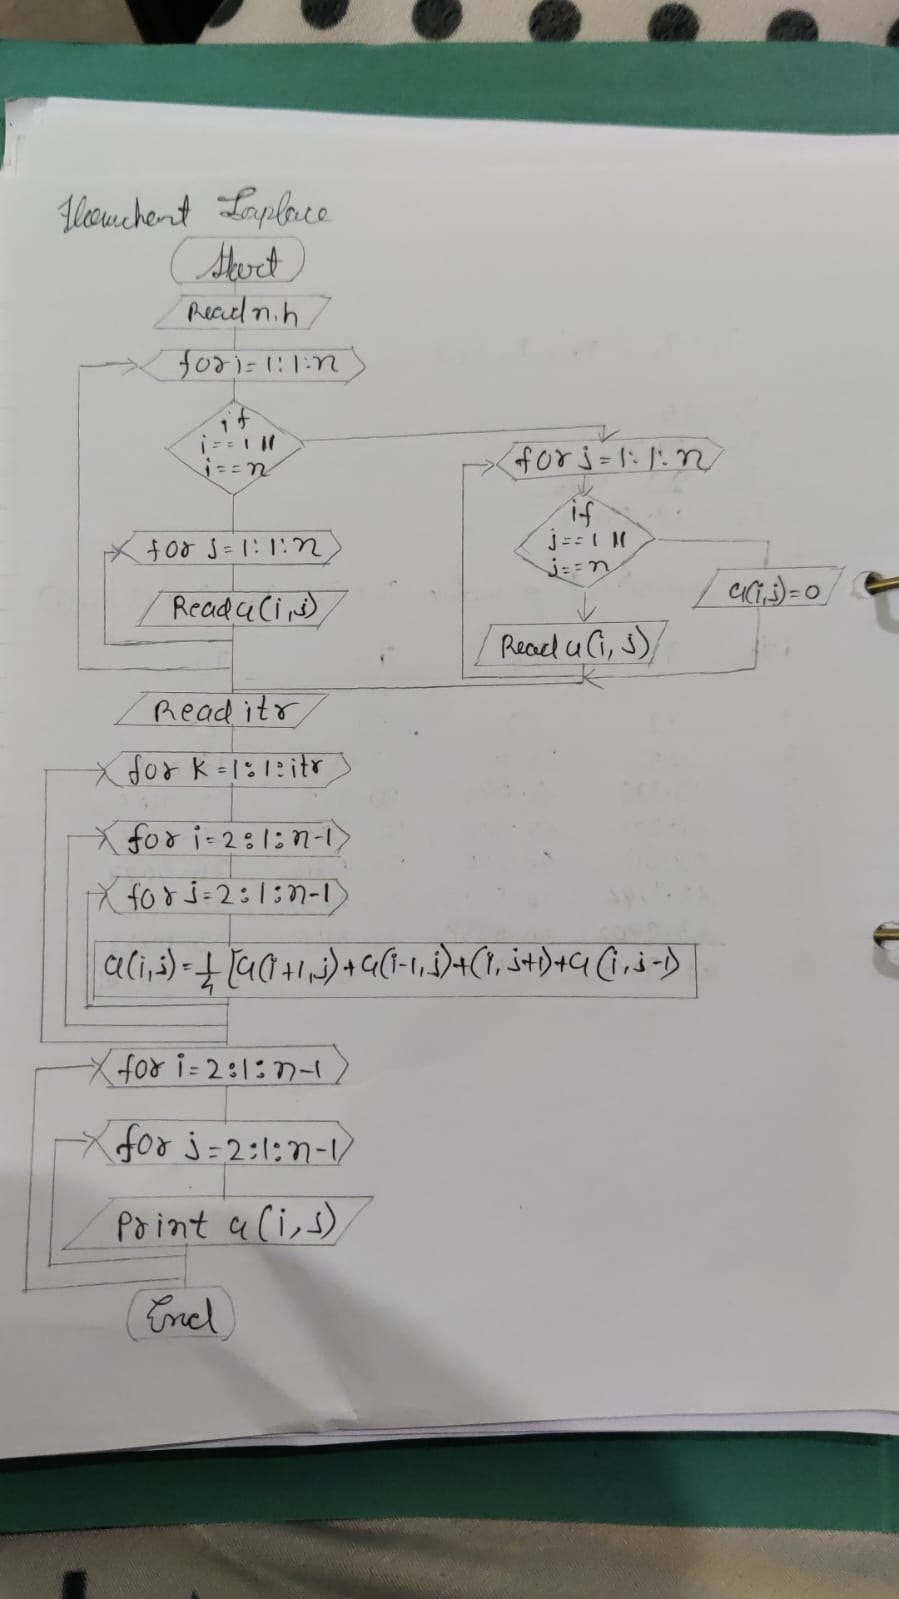 Flowchart Laplace
Start
Read n,h
for i=1:1:n
if
i==1 ||
i==n
for j=1:1:n
Read u(i,j)
for j=1:1:n
if
j==1 ||
j==n
u(i,j)=0
Read u(i,j)
Read itr
for k=1:1:itr
for i=2:1:n-1
for j=2:1:n-1
u(i,j)=1/4 [u(i+1,j)+u(i-1,j)+(i,j+1)+u(i,j-1)
for i=2:1:n-1
for j=2:1:n-1
Print u(i,j)
End